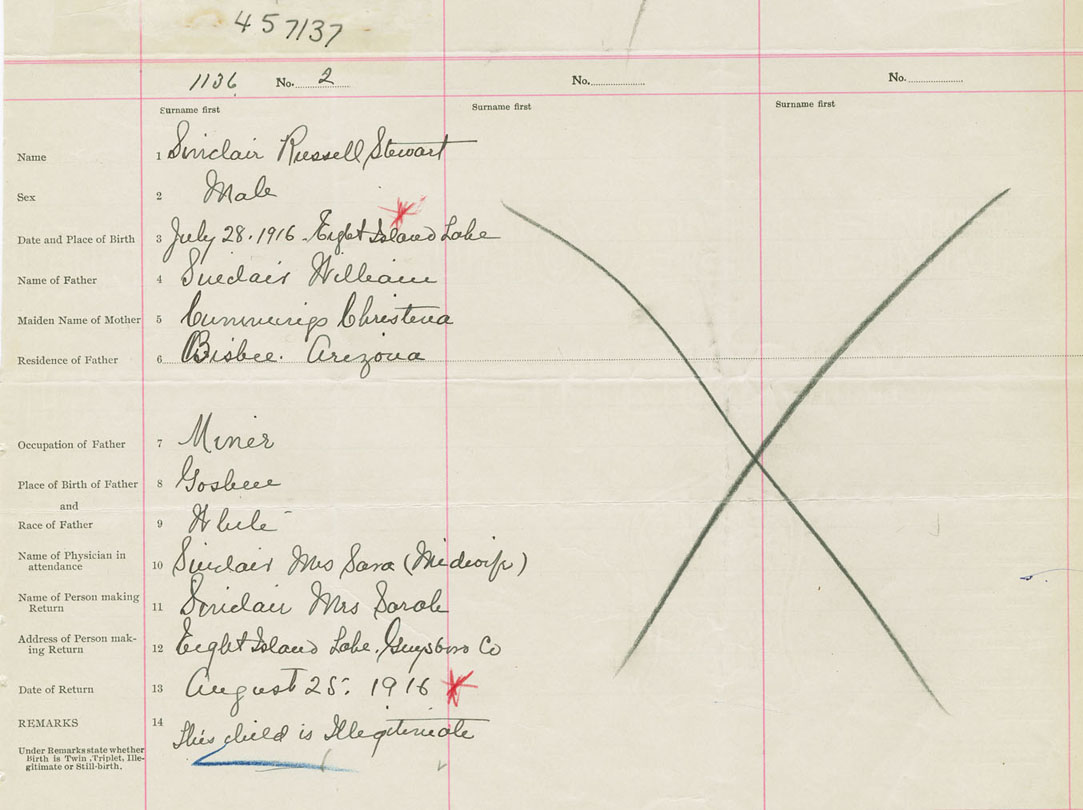 457137
1136 No. 2 No. No.
Surname first Surname first Surname first
Name 1 Sinclair Russell Stewart
Sex 2 Male
Date and Place of Birth 3 July 28. 1916 - Eight Island Lake
Name of Father 4 Sinclair William
Maiden Name of Mother 5 Cummings Christena
Residence of Father 6 Bisbee. Arizona
Occupation of Father 7 Miner
Place of Birth of Father 8 Goshen
and
Race of Father 9 White
Name of Physician in
attendance 10 Sinclair Mrs Sara (Midwife)
Name of Person making
Return 11 Sinclair Mrs Sarah
Address of Person mak-
ing Return 12 Eight Island Lake, Guysboro Co
Date of Return 13 August 25. 1916
REMARKS 14 This child is Illegitimate
Under Remarks state whether
Birth is Twin, Triplet, Ille-
gitimate or Still-birth.